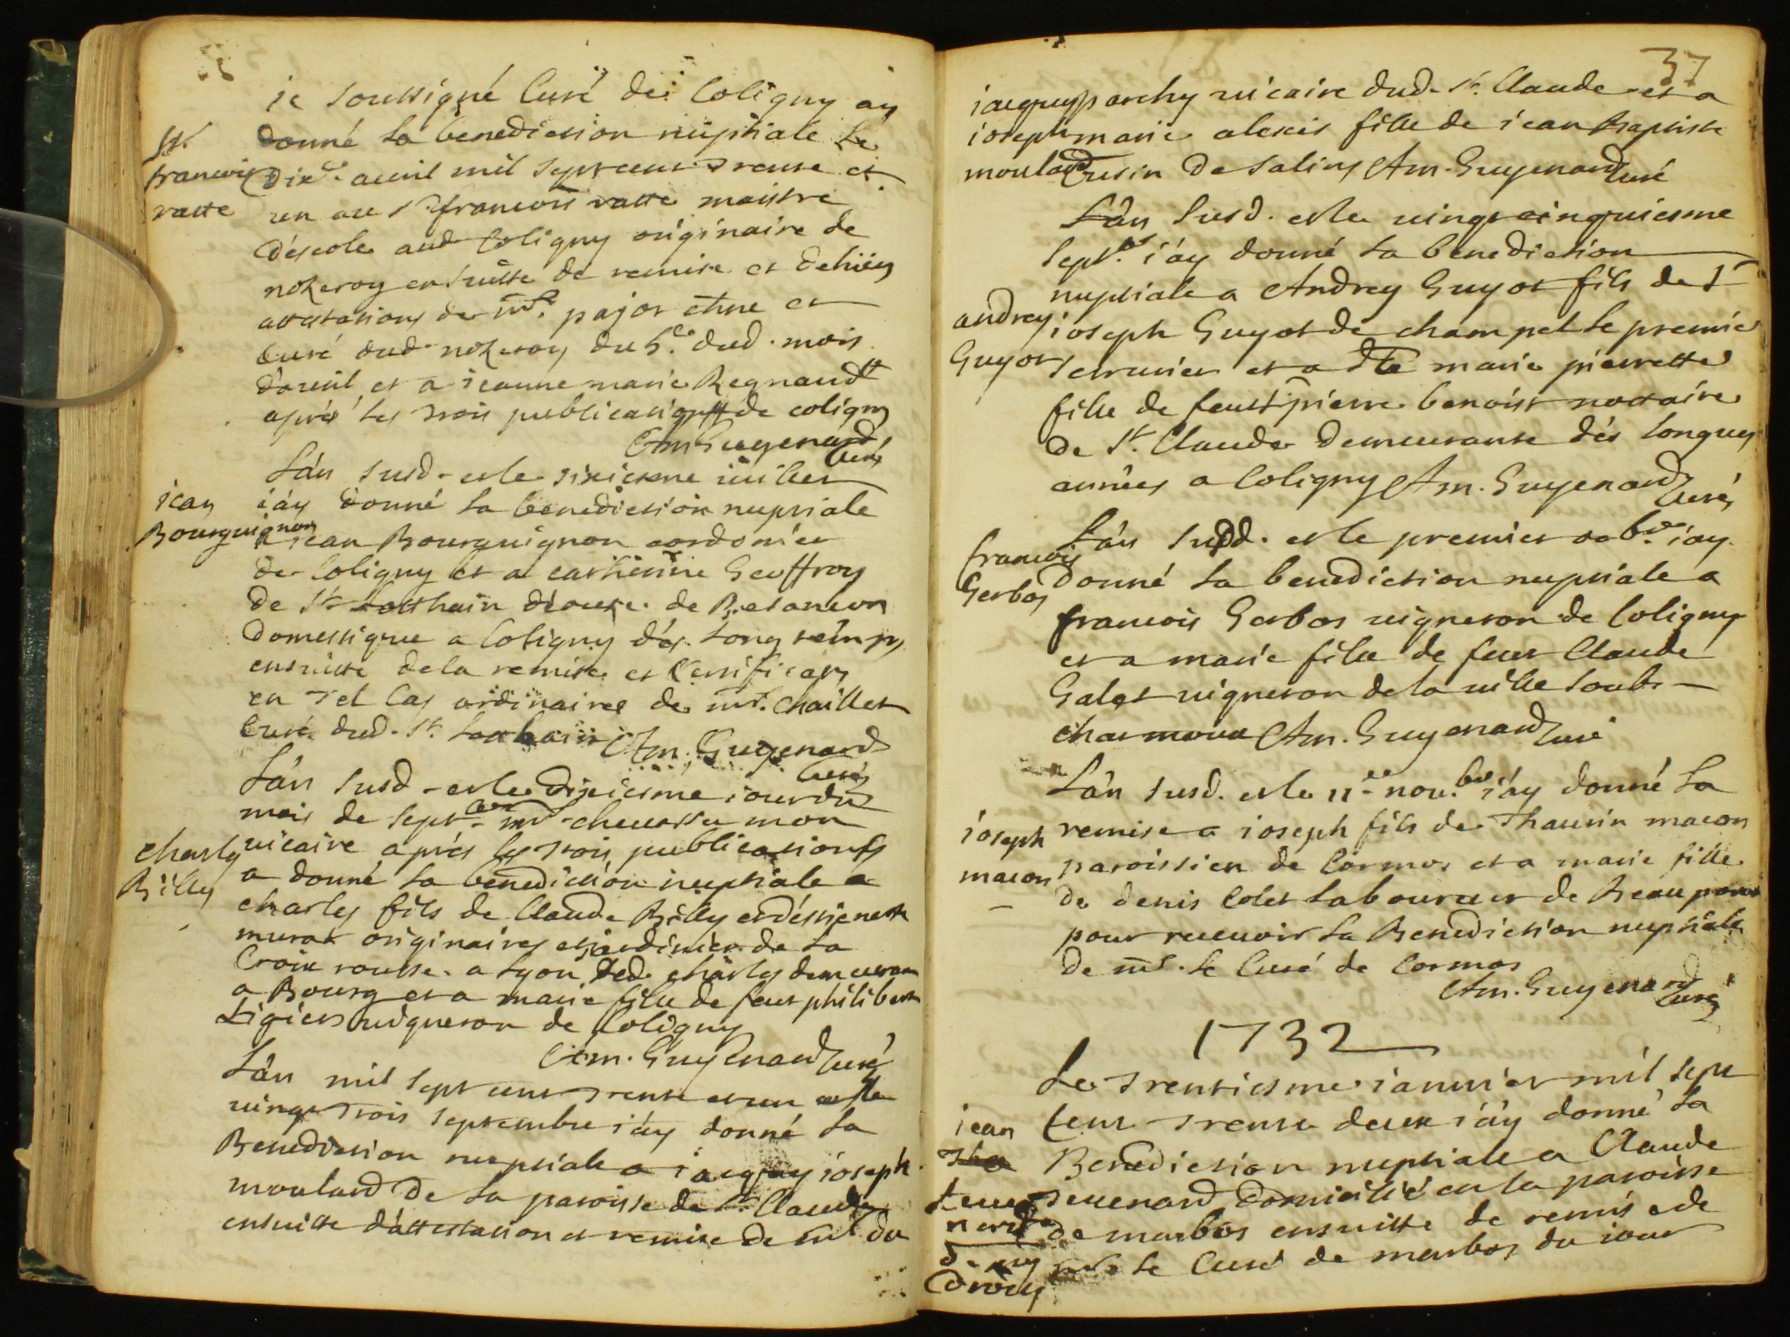 ie soussigné Curé de Coligny ay
donné la benediction nuptiale le
Sr
francois
ratte
dixe. avril mil sept cent trente et
un au Sr francois ratte maistre
d'éscole aud Coligny originaire de
nozeroy ensuitte de remise et
attestations de mr. pajot
Curé dud nozeroy du 5e. dud. mois
d'avril et a ieanne marie Regnaud
aprés les trois publications de coligny
Am. Guyenard
Curé
L'án susd. et le sixiesme iuillet
iean
Bourguignon
i'áy donné la benediction nuptiale
a iean Bourguignon cordonier
de Coligny et a catherine Geoffroy
de St. Lothain diocese de Besancon
domestique a Coligny dés long temps
ensuitte de la remise et Certificat
en tel Cas ordinaires de mr. Chaillet
Curé dud. St. Lothain Am. Guyenard
Curé
L'án susd. et le dixiesme iour du
mois de septbre mr chevassu mon
Charly
Billy
vicaire aprés les trois publications
a donné la benediction nuptiale a
charles fils de Claude Billy et d'éstienette
murat originaires et iardinier de la
Croix rousse a Lyon led. charles demeurant
a Bourg et a marie fille de feu philibert
Ligier vigneron de Coligny
Am. Guyenard Curé
L'án mil sept cent trente et un et le
vingt trois septembre i'áy donné la
Benediction nuptiale a iacques ioseph
moulard de la paroisse de St. Claude
ensuitte d'attestation et remise de mr du
37
parchy vicaire dud. St. Claude et a
iacques
ioseph
moulard
marie alexis fille de iean Baptiste
Cusin de Salins Am. Guyenard Curé
L'án susd. et le vingt cinquiesme
septbre. i'áy donné la benediction
nuptiale a Andrey Guyot fils de Sr
andrey
Guyot
ioseph Guyot de champ le premier
serrurier et a dlle marie pierrette
fille de feu Sr pierre benoist nottaire
de St. Claude demeurante dés longues
années a Coligny Am. Guyenard
Curé
L'án susd. et le premier octobre i'ay
francois
Gerbos
donné la benediction nuptiale a
francois Gerbos vigneron de Coligny
et a marie fille de feu Claude
Galet vigneron de la ville soub
charmoux Am. Guyenard Curé
L'án susd. et le 11e nov.bre i'áy donné la
ioseph
macon
remise a ioseph fils de Thaurin macon
paroissien de Cormos et a marie fille
de denis Colet laboureur de Beaupont
pour recevoir la Benediction nuptiale
de mr. le Curé de Cormos
Am. Guyenard
Curé
1732
Le trentiesme ianvier mil sept
cent trente deux i'áy donné la
iean
Benediction nuptiale a Claude
tevenard domicilié en la paroisse
de marbos ensuitte de remise de
mr le Curé de marbos du iour